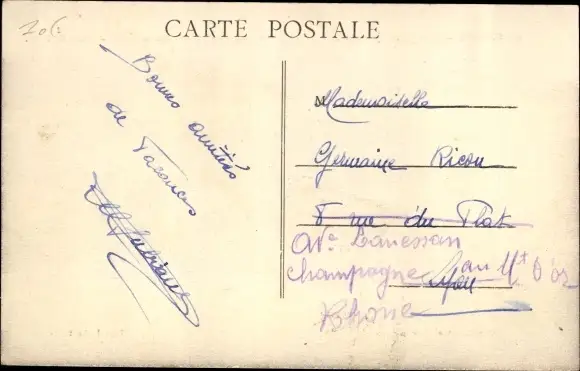 CARTE POSTALE
Bonnes amitiés
de Tarascon
Mademoiselle
Germaine Ricou
8 rue du Plat
Ave Lanessan
Champagne au Mt d'or
Lyon
Rhône